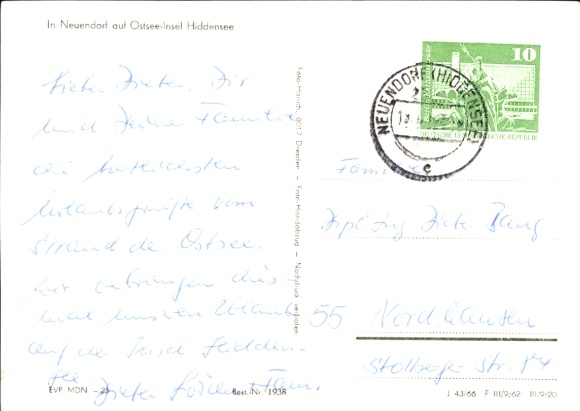 In Neuendorf auf Ostsee-Insel Hiddensee
Lieber Dieter, Dir
und Deiner Familie
die herzlichsten
Urlaubsgrüße vom
Strand der Ostsee.
Wir verbringen dies-
mal unseren Urlaub
auf der Insel Hidden-
see Dieter + Fam.
EVP MDN
Best.-Nr. 1938
Foto-Handabzug — Nachdruck verboten
8017 Dresden
10
DEUTSCHE DEMOKRATISCHE REPUBLIK
NEUENDORF (HIDDENSEE)
c
Familie
Dipl. Ing. Dieter
55 Nordhausen
Stolberger Str. 84
J 43/66 F III/9/62 III/9/20